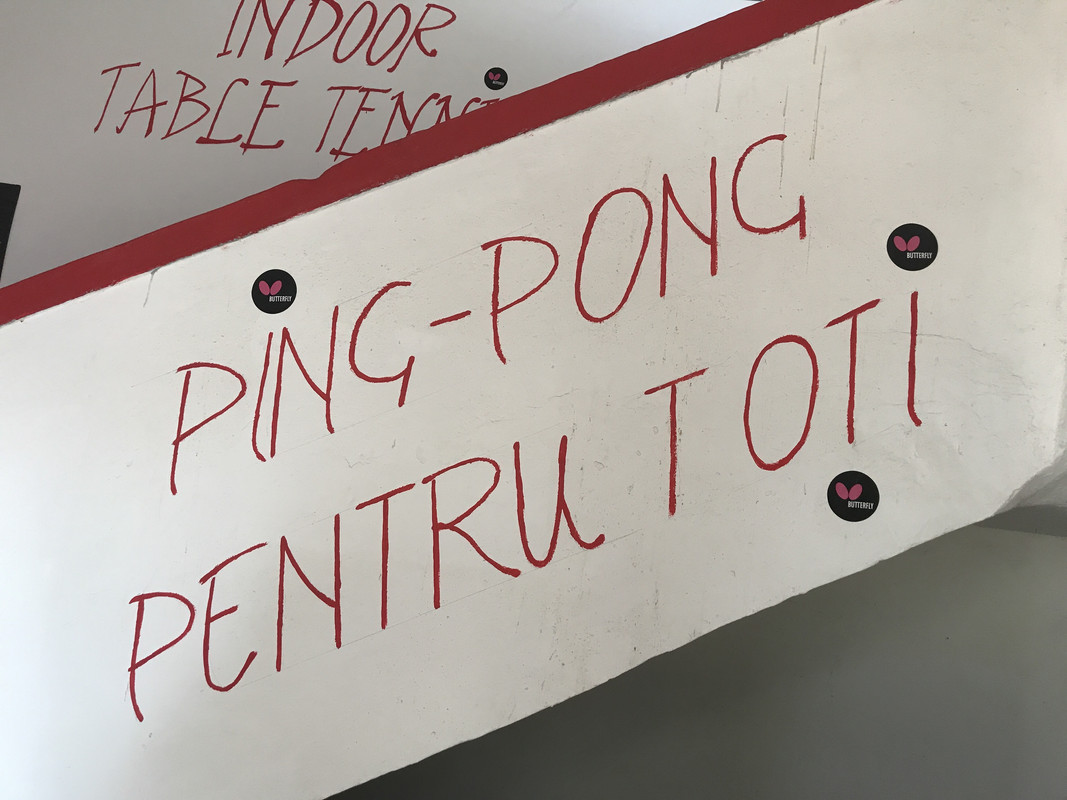 INDOOR
TABLE TENNIS
BUTTERFLY
PING-PONG
PENTRU TOTI
BUTTERFLY
BUTTERFLY
BUTTERFLY